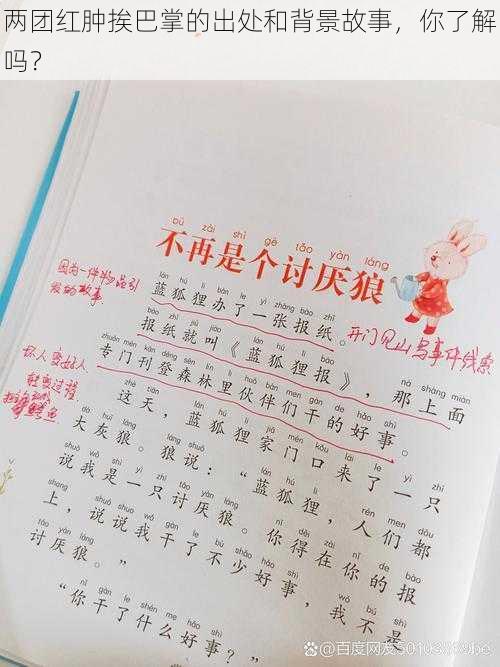 两团红肿挨巴掌的出处和背景故事，你了解
吗？
bú zài shì gè tǎo yàn láng
不再是个讨厌狼
因为一件物品引
发的故事
lán hú li bàn le yì zhāng bào zhǐ
蓝狐狸办了一张报纸。
开门见山写事件线索
bào zhǐ jiù jiào lán hú li bào nà shàng miàn
报纸就叫《蓝狐狸报》，那上面
坏人变好人
zhuān mén kān dēng sēn lín li huǒ bàn men gàn de hǎo shì
专门刊登森林里伙伴们干的好事。
这天，蓝狐狸家门口来了一只
dà huī láng láng shuō lán hú li rén men dōu
大灰狼。狼说：“蓝狐狸，人们都
shuō wǒ shì yì zhī tǎo yàn láng nǐ děi zài nǐ de bào
说我是一只讨厌狼。你得在你的报
shàng shuō shuo wǒ gàn le bù shǎo hǎo shì wǒ bú shì
上，说说我干了不少好事，我不是
tǎo yàn láng
讨厌狼。”
nǐ gàn le shén me hǎo shì
“你干了什么好事？”